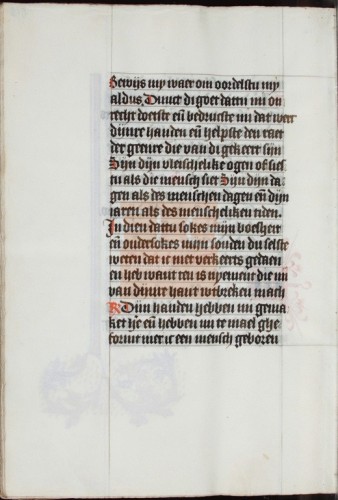 Bewijs my waer om oordelstu my
aldus. Dunct di goet dattu mi on
recht doeste eñ bedructste mi dat werc
dijnre handen eñ helpste den raet
der geenre die van di gekeert sijn
Sijn dijn vleischelike ogen of siest
tu als die mensch siet Sijn dijn da
gen als des menschen dagen eñ dijn
iaren als des menscheliken tiden.
In dien dattu sokes mijn boesheit
eñ ondersokes mijn sonden du selste
weten dat ic niet verkeerts gedaen
en heb want ten is nyement die mi
van dinre hant wtbreken mach
Dijn handen hebben mi gema
ket ye eñ hebben mi te mael ghe
formt met ic een mensch geboren